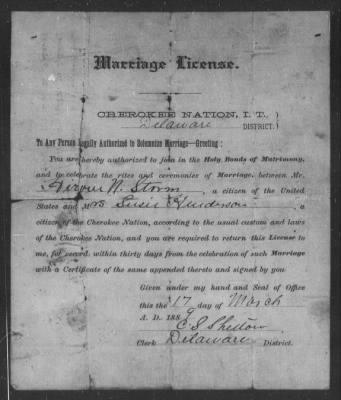 Marriage License.
CHEROKEE NATION, I. T., )
Delaware DISTRICT. )
To Any Person Legally Authorized to Solemnize Marriage—Greeting:
You are hereby authorized to join in the Holy Bonds of Matrimony,
and to celebrate the rites and ceremonies of Marriage, between Mr.
W. Storm, a citizen of the United
States and Mrs Susie a
citizen of the Cherokee Nation, according to the usual custom and laws
of the Cherokee Nation, and you are required to return this License to
me, for record, within thirty days from the celebration of such Marriage
with a Certificate of the same appended thereto and signed by you.
Given under my hand and Seal of Office
this the 17 day of March
A. D. 1889
E. S. Shelton
Clerk Delaware District.